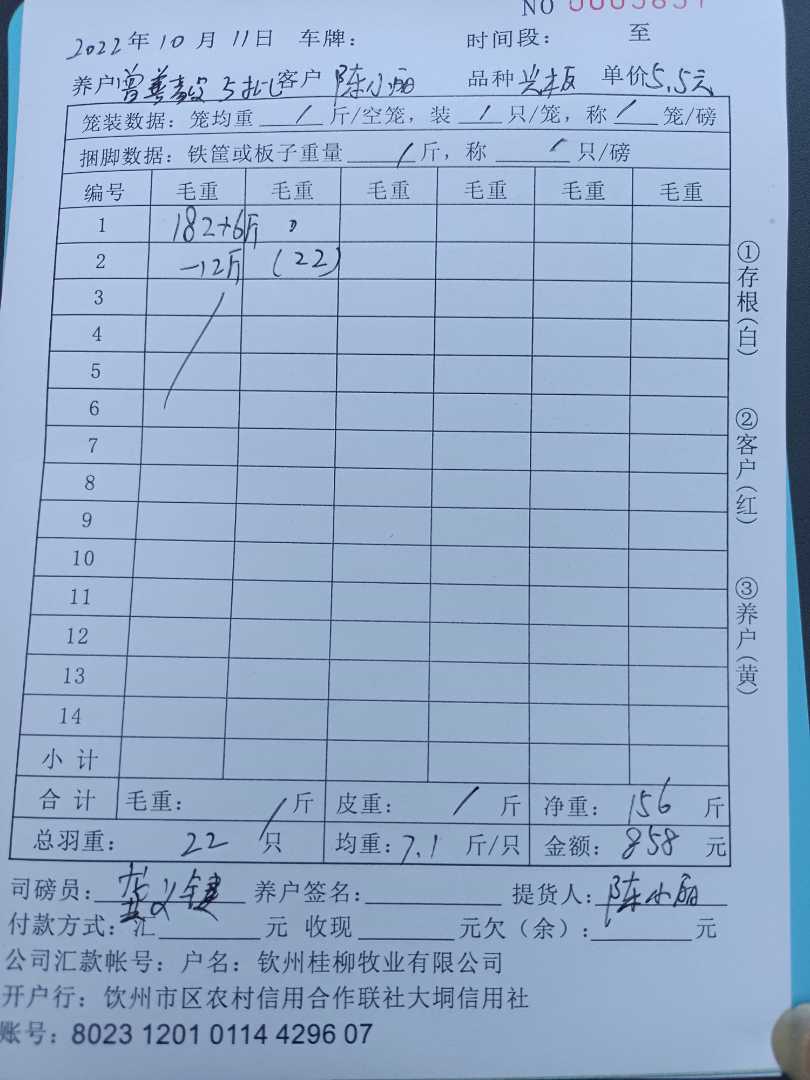 NO 0003837
2022年10月11日 车牌: 时间段: 至
养户 曾善 5批 客户 陈小丽 品种 单价5.5元
笼装数据: 笼均重 / 斤/空笼, 装 / 只/笼, 称 / 笼/磅
捆脚数据: 铁筐或板子重量 / 斤, 称 / 只/磅
编号 毛重 毛重 毛重 毛重 毛重 毛重
1 182+6斤
2 -12斤 (22)
3
4
5
6
7
8
9
10
11
12
13
14
小计
合计 毛重: / 斤 皮重: / 斤 净重: 156 斤
总羽重: 22 只 均重: 7.1 斤/只 金额: 858 元
司磅员: 养户签名: 提货人: 陈小丽
付款方式: 汇 元 收现 元欠(余): 元
公司汇款帐号: 户名: 钦州桂柳牧业有限公司
开户行: 饮州市区农村信用合作联社大垌信用社
账号: 8023 1201 0114 4296 07
①存根(白)
②客户(红)
③养户(黄)